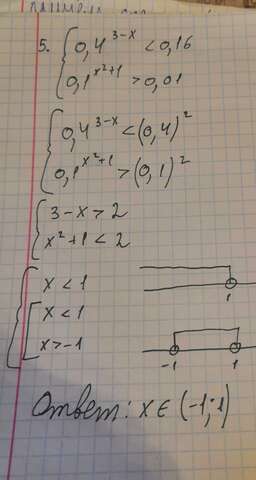 5. { 0,4^(3-x) < 0,16
0,1^(x²+1) > 0,01
{ 0,4^(3-x) < (0,4)²
0,1^(x²+1) > (0,1)²
{ 3-x > 2
x²+1 < 2
{ x < 1
[ x < 1
x > -1
1
-1 1
Ответ: x ∈ (-1; 1)